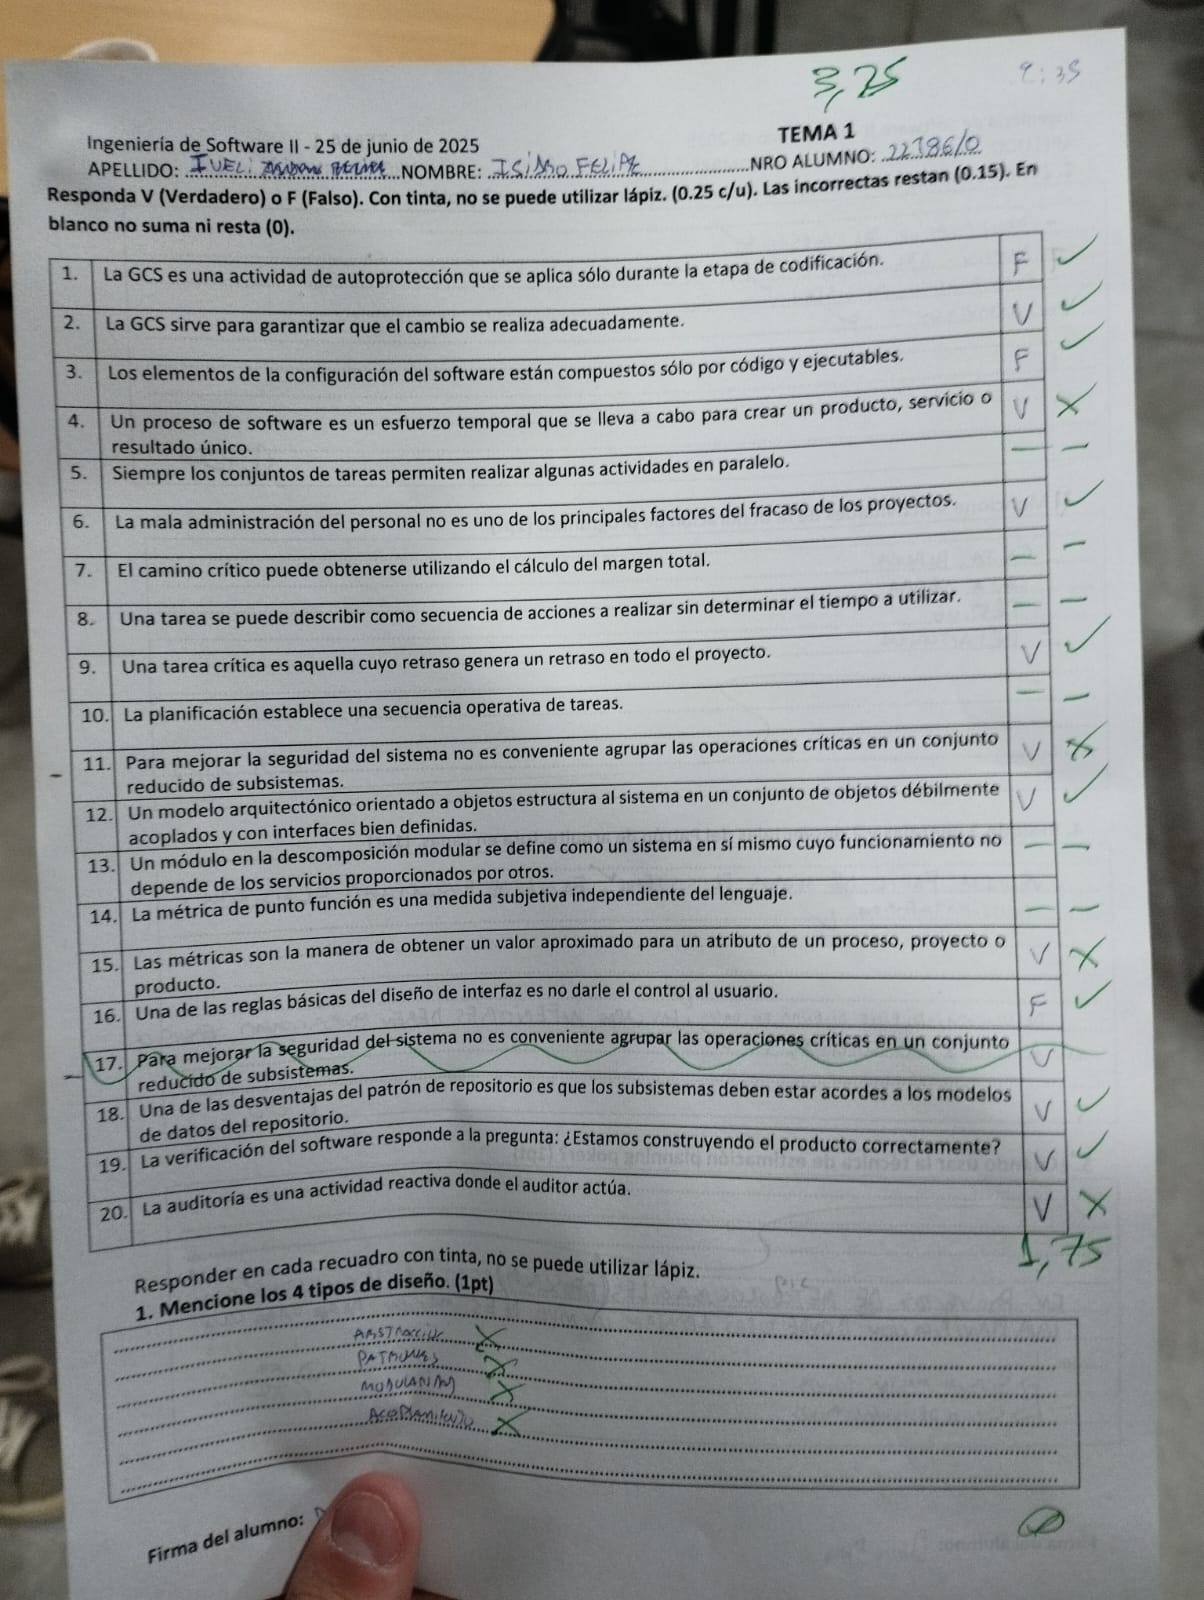 3,25
9:35
Ingeniería de Software II - 25 de junio de 2025
TEMA 1
APELLIDO: IVELI NOMBRE: ISIDRO FELIPE NRO ALUMNO: 22786/0
Responda V (Verdadero) o F (Falso). Con tinta, no se puede utilizar lápiz. (0.25 c/u). Las incorrectas restan (0.15). En
blanco no suma ni resta (0).
1. La GCS es una actividad de autoprotección que se aplica sólo durante la etapa de codificación. F ✓
2. La GCS sirve para garantizar que el cambio se realiza adecuadamente. V ✓
3. Los elementos de la configuración del software están compuestos sólo por código y ejecutables. F ✓
4. Un proceso de software es un esfuerzo temporal que se lleva a cabo para crear un producto, servicio o V X
resultado único.
5. Siempre los conjuntos de tareas permiten realizar algunas actividades en paralelo. — —
6. La mala administración del personal no es uno de los principales factores del fracaso de los proyectos. V ✓
7. El camino crítico puede obtenerse utilizando el cálculo del margen total. — —
8. Una tarea se puede describir como secuencia de acciones a realizar sin determinar el tiempo a utilizar. — —
9. Una tarea crítica es aquella cuyo retraso genera un retraso en todo el proyecto. V ✓
10. La planificación establece una secuencia operativa de tareas. — —
11. Para mejorar la seguridad del sistema no es conveniente agrupar las operaciones críticas en un conjunto V X
reducido de subsistemas.
12. Un modelo arquitectónico orientado a objetos estructura al sistema en un conjunto de objetos débilmente V ✓
acoplados y con interfaces bien definidas.
13. Un módulo en la descomposición modular se define como un sistema en sí mismo cuyo funcionamiento no — —
depende de los servicios proporcionados por otros.
14. La métrica de punto función es una medida subjetiva independiente del lenguaje. — —
15. Las métricas son la manera de obtener un valor aproximado para un atributo de un proceso, proyecto o V X
producto.
16. Una de las reglas básicas del diseño de interfaz es no darle el control al usuario. F ✓
17. Para mejorar la seguridad del sistema no es conveniente agrupar las operaciones críticas en un conjunto V
reducido de subsistemas.
18. Una de las desventajas del patrón de repositorio es que los subsistemas deben estar acordes a los modelos V ✓
de datos del repositorio.
19. La verificación del software responde a la pregunta: ¿Estamos construyendo el producto correctamente? V ✓
20. La auditoría es una actividad reactiva donde el auditor actúa. V X
1,75
Responder en cada recuadro con tinta, no se puede utilizar lápiz.
1. Mencione los 4 tipos de diseño. (1pt)
ABSTRACCIÓN X
PATRONES X
MODULARIDAD X
ACOPLAMIENTO X
Firma del alumno: